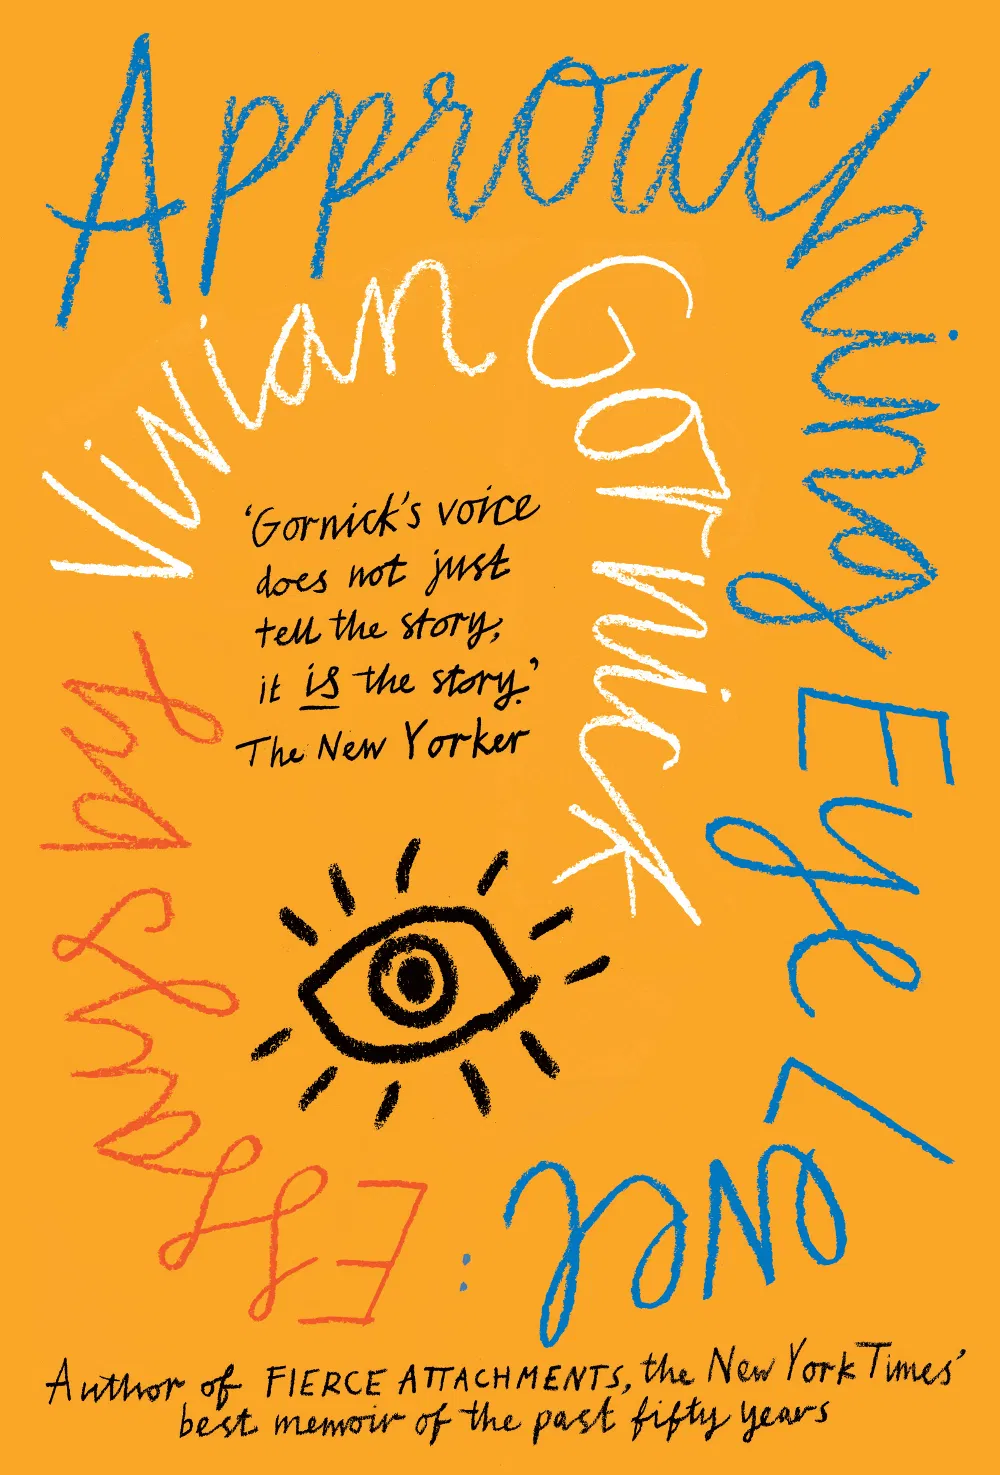 Approaching Eye Level:
Essays by
Vivian Gornick
'Gornick's voice
does not just
tell the story,
it is the story.'
The New Yorker
Author of FIERCE ATTACHMENTS, the New York Times'
best memoir of the past fifty years